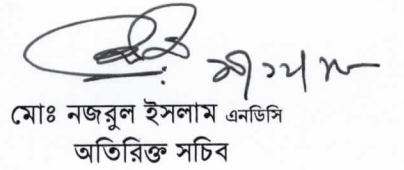 মোঃ নজরুল ইসলাম এনডিসি
অতিরিক্ত সচিব